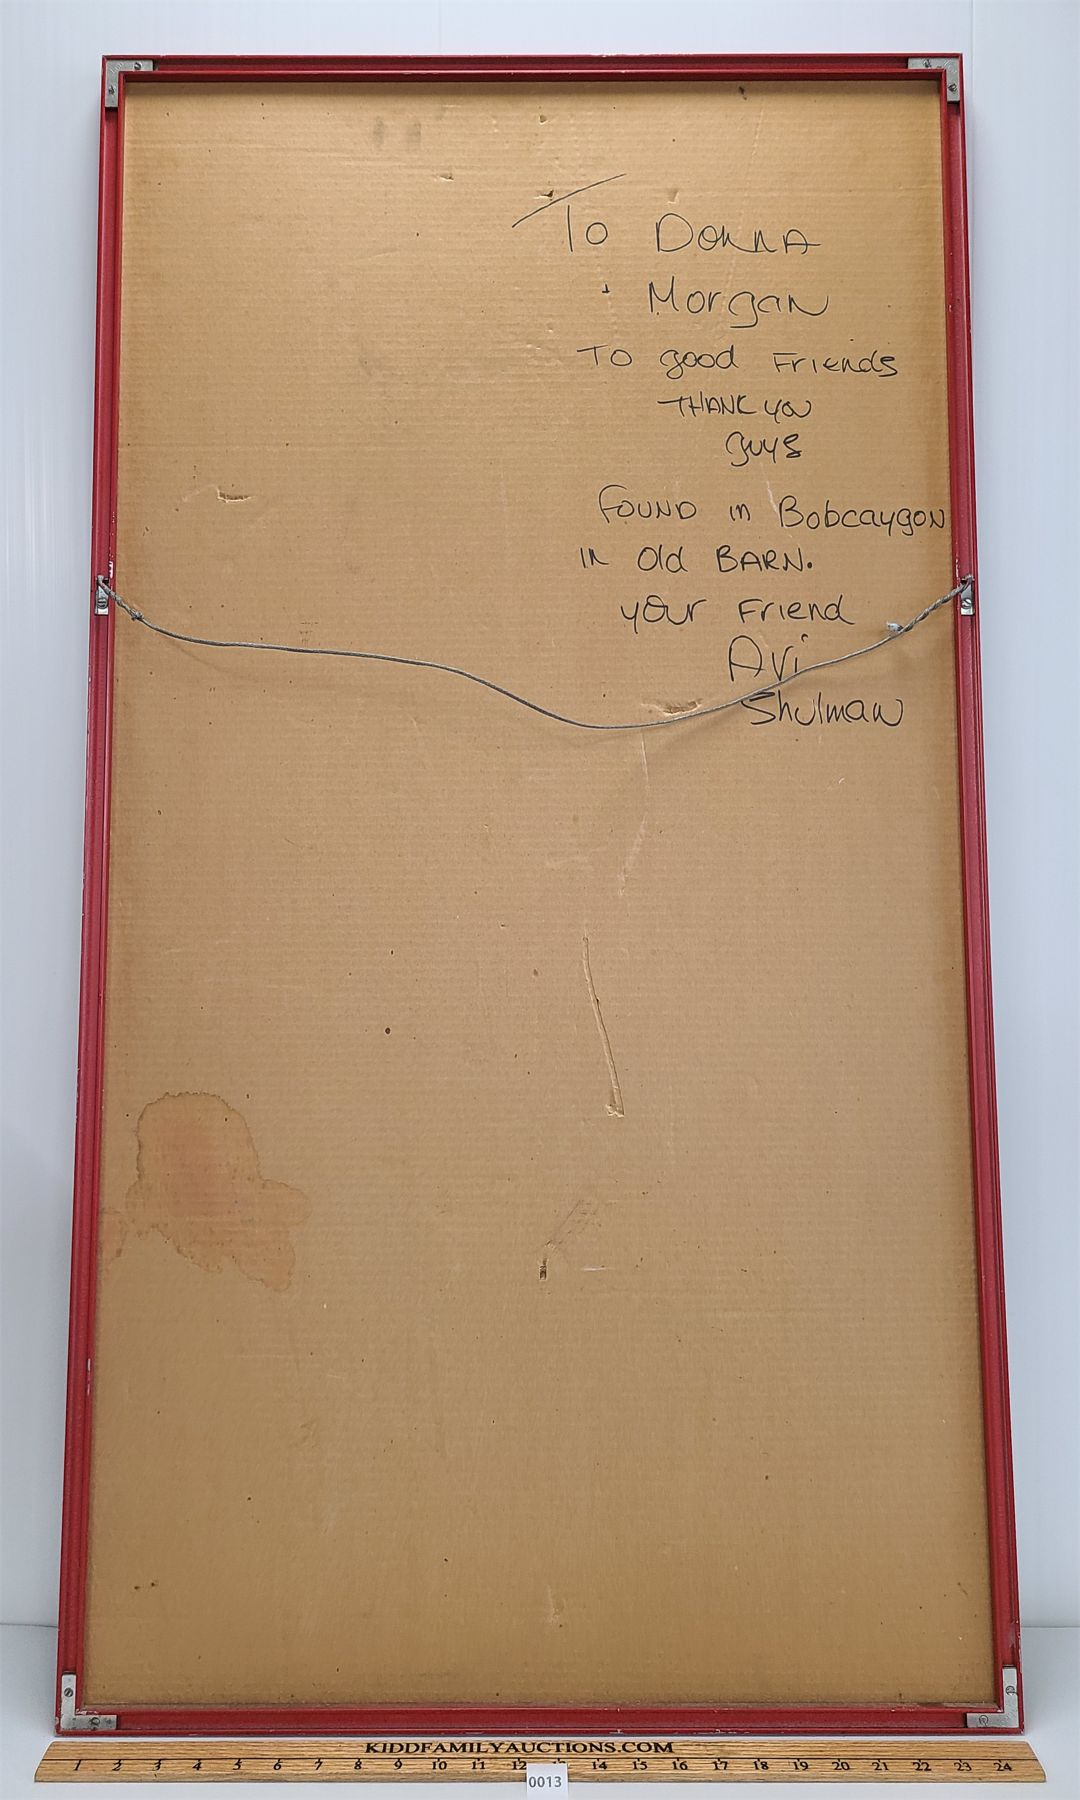 To DONNA
+ Morgan
To good Friends
THANK you
guys
FOUND in Bobcaygon
IN Old BARN.
your Friend
Avi
Shulman
KIDDFAMILYAUCTIONS.COM
1 2 3 4 5 6 7 8 9 10 11 12 14 15 16 17 18 19 20 21 22 23 24
0013